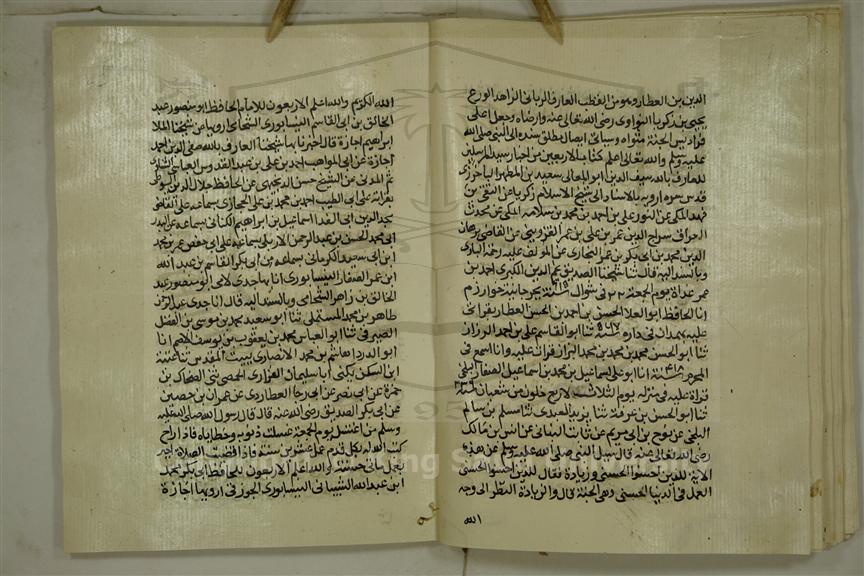 الدين بن العطار وهو من القطب العارف الرباني الزاهد الورع
يحيى بن زكريا النواوي رضى الله تعالى عنه وارضاه وجعل اعلى
فراديس الجنة مثواه وسياتي ايصال مطلق سنده الى النبي صلى الله
عليه وسلم والله تعالى اعلم كتاب الاربعين من اخبار سيد المرسلين
للعارف بالله سيف الدين ابو المعالي سعيد بن المطهر الباخرزي
قدس سره ارويه بالاسناد الى شيخ الاسلام زكريا عن التقي بن
فهد المكي عن النور علي بن احمد بن محمد بن سلامه المكي عن محدث
العراق سراج الدين عمر بن علي بن عمر القزويني عن القاضي برهان
الدين محمد بن عمر بن محمد البخاري عن المولف عليه رحمة الباري
وبالسند اليه قال ثنا شيخنا الصديق نجم الدين الكبرى احمد بن
عمر غداة يوم الجمعة ٢٢ في شوال سنة ٦١٥ بجرجانية خوارزم
انا الحافظ ابو العلا الحسن بن احمد بن الحسن العطار بقراتي
عليه بهمدان في داره سنة ثنا ابو القاسم علي بن احمد الرزاز
ثنا ابو الحسن محمد بن محمد بن محمد البزاز قراة عليه وانا اسمع في
المحرم سنة ٤١٨ انا ابو علي اسماعيل بن محمد بن اسماعيل الصفار
قراة عليه في منزله يوم الثلاث لاربع خلون من شعبان سنة ٣٣٩
ثنا ابو الحسن بن عرفة ثنا يزيد العبدي ثنا مسلم بن سالم
البلخي عن نوح بن ابي مريم عن ثابت البناني عن انس بن مالك
رضى الله تعالى عنه قال سيل النبي صلى الله عليه وسلم عن هذه
الاية للذين احسنوا الحسنى وزيادة فقال للذين احسنوا الحسنى
العمل في الدنيا الحسنى وهي الجنة قال والزيادة النظر الى وجه
الله
الله الكريم والله اعلم الاربعون للامام الحافظ ابو منصور عبد
الخالق بن ابي القاسم النيسابوري الشحامي ارويها عن شيخنا الملا
ابراهيم اجازة قال اخبرنا بها شيخنا العارف بالله صفي الدين احمد
اجازة عن ابي المواهب احمد بن علي بن عبد القدوس العباسي
ثم المدني عن الشيخ حسن الدنجيهي عن الحافظ جلال الدين السيوطي
بقراته على ابي الطيب احمد بن محمد بن علي الحجازي بسماعه على القاضي
مجد الدين ابي الفدا اسماعيل بن ابراهيم الكناني بسماعه على البدر
ابي محمد الحسن بن عبد الرحمن الاربلي بسماعه على ابي حفص عمر بن محمد
ابن ابي سعيد الكرماني بسماعه من ابي بكر القاسم بن عبد الله
ابن عمر الصفار النيسابوري انا بها جدي لامي ابو منصور عبد
الخالق بن زاهر الشحامي وبالسند اليه قال انا جدي عبد الرحمن
طاهر بن محمد المستملي ثنا ابو سعيد محمد بن موسى بن الفضل
الصيرفي ثنا ابو العباس محمد بن يعقوب بن يوسف الاصم انا
ابو الدرداء هاشم بن محمد الانصاري ببيت المقدس ثنا عتبة
ابن السكن يكنى ابا سليمان الفزاري الحمصي ثني الضحاك بن
حمزة عن ابي نصر عن ابي رجا العطاردي عن عمران بن حصين
عن ابي بكر الصديق رضى الله عنه قال قال رسول الله صلى الله عليه
وسلم من اغتسل يوم الجمعة غسلت ذنوبه وخطاياه فاذا راح
كتب الله له بكل قدم عمل عشرين سنة فاذا قضيت الصلاة اجيز
بعمل مائتي سنة والله اعلم الاربعون للحافظ ابي بكر محمد
ابن عبد الله الشيباني النيسابوري الجوزقي ارويها اجازة